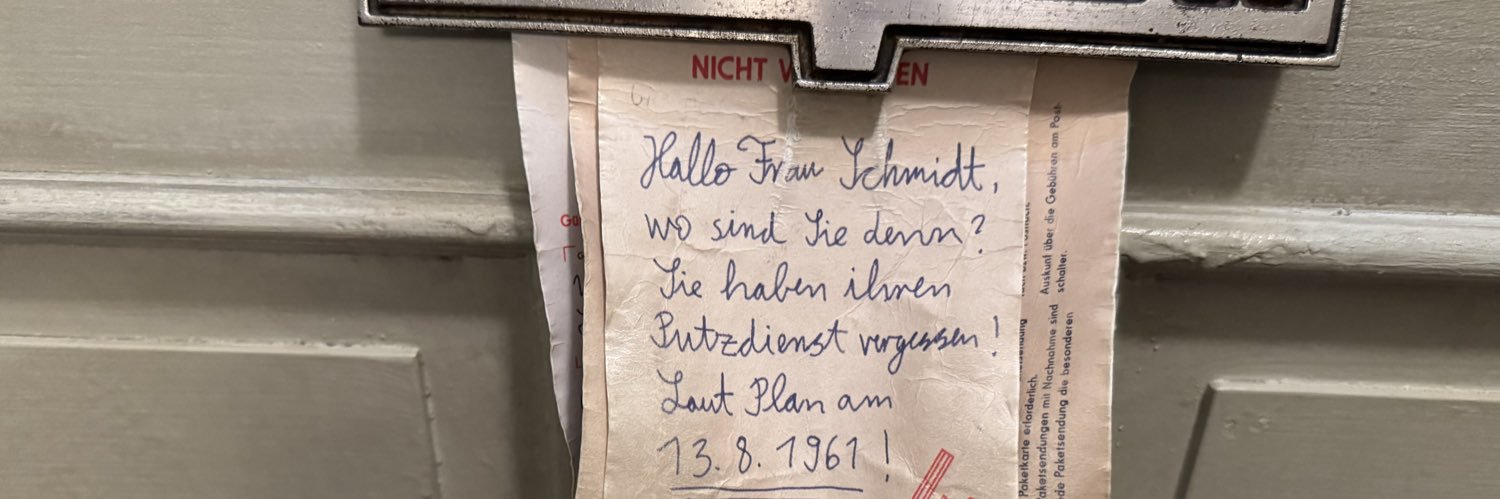 NICHT
Hallo Frau Schmidt,
wo sind Sie denn?
Sie haben ihren
Putzdienst vergessen!
Laut Plan am
13.8.1961!
Auskunft über die Gebühren am Post-
schalter.
Paketkarte erforderlich.
Paketsendungen mit Nachnahme sind
de Paketsendung die besonderen